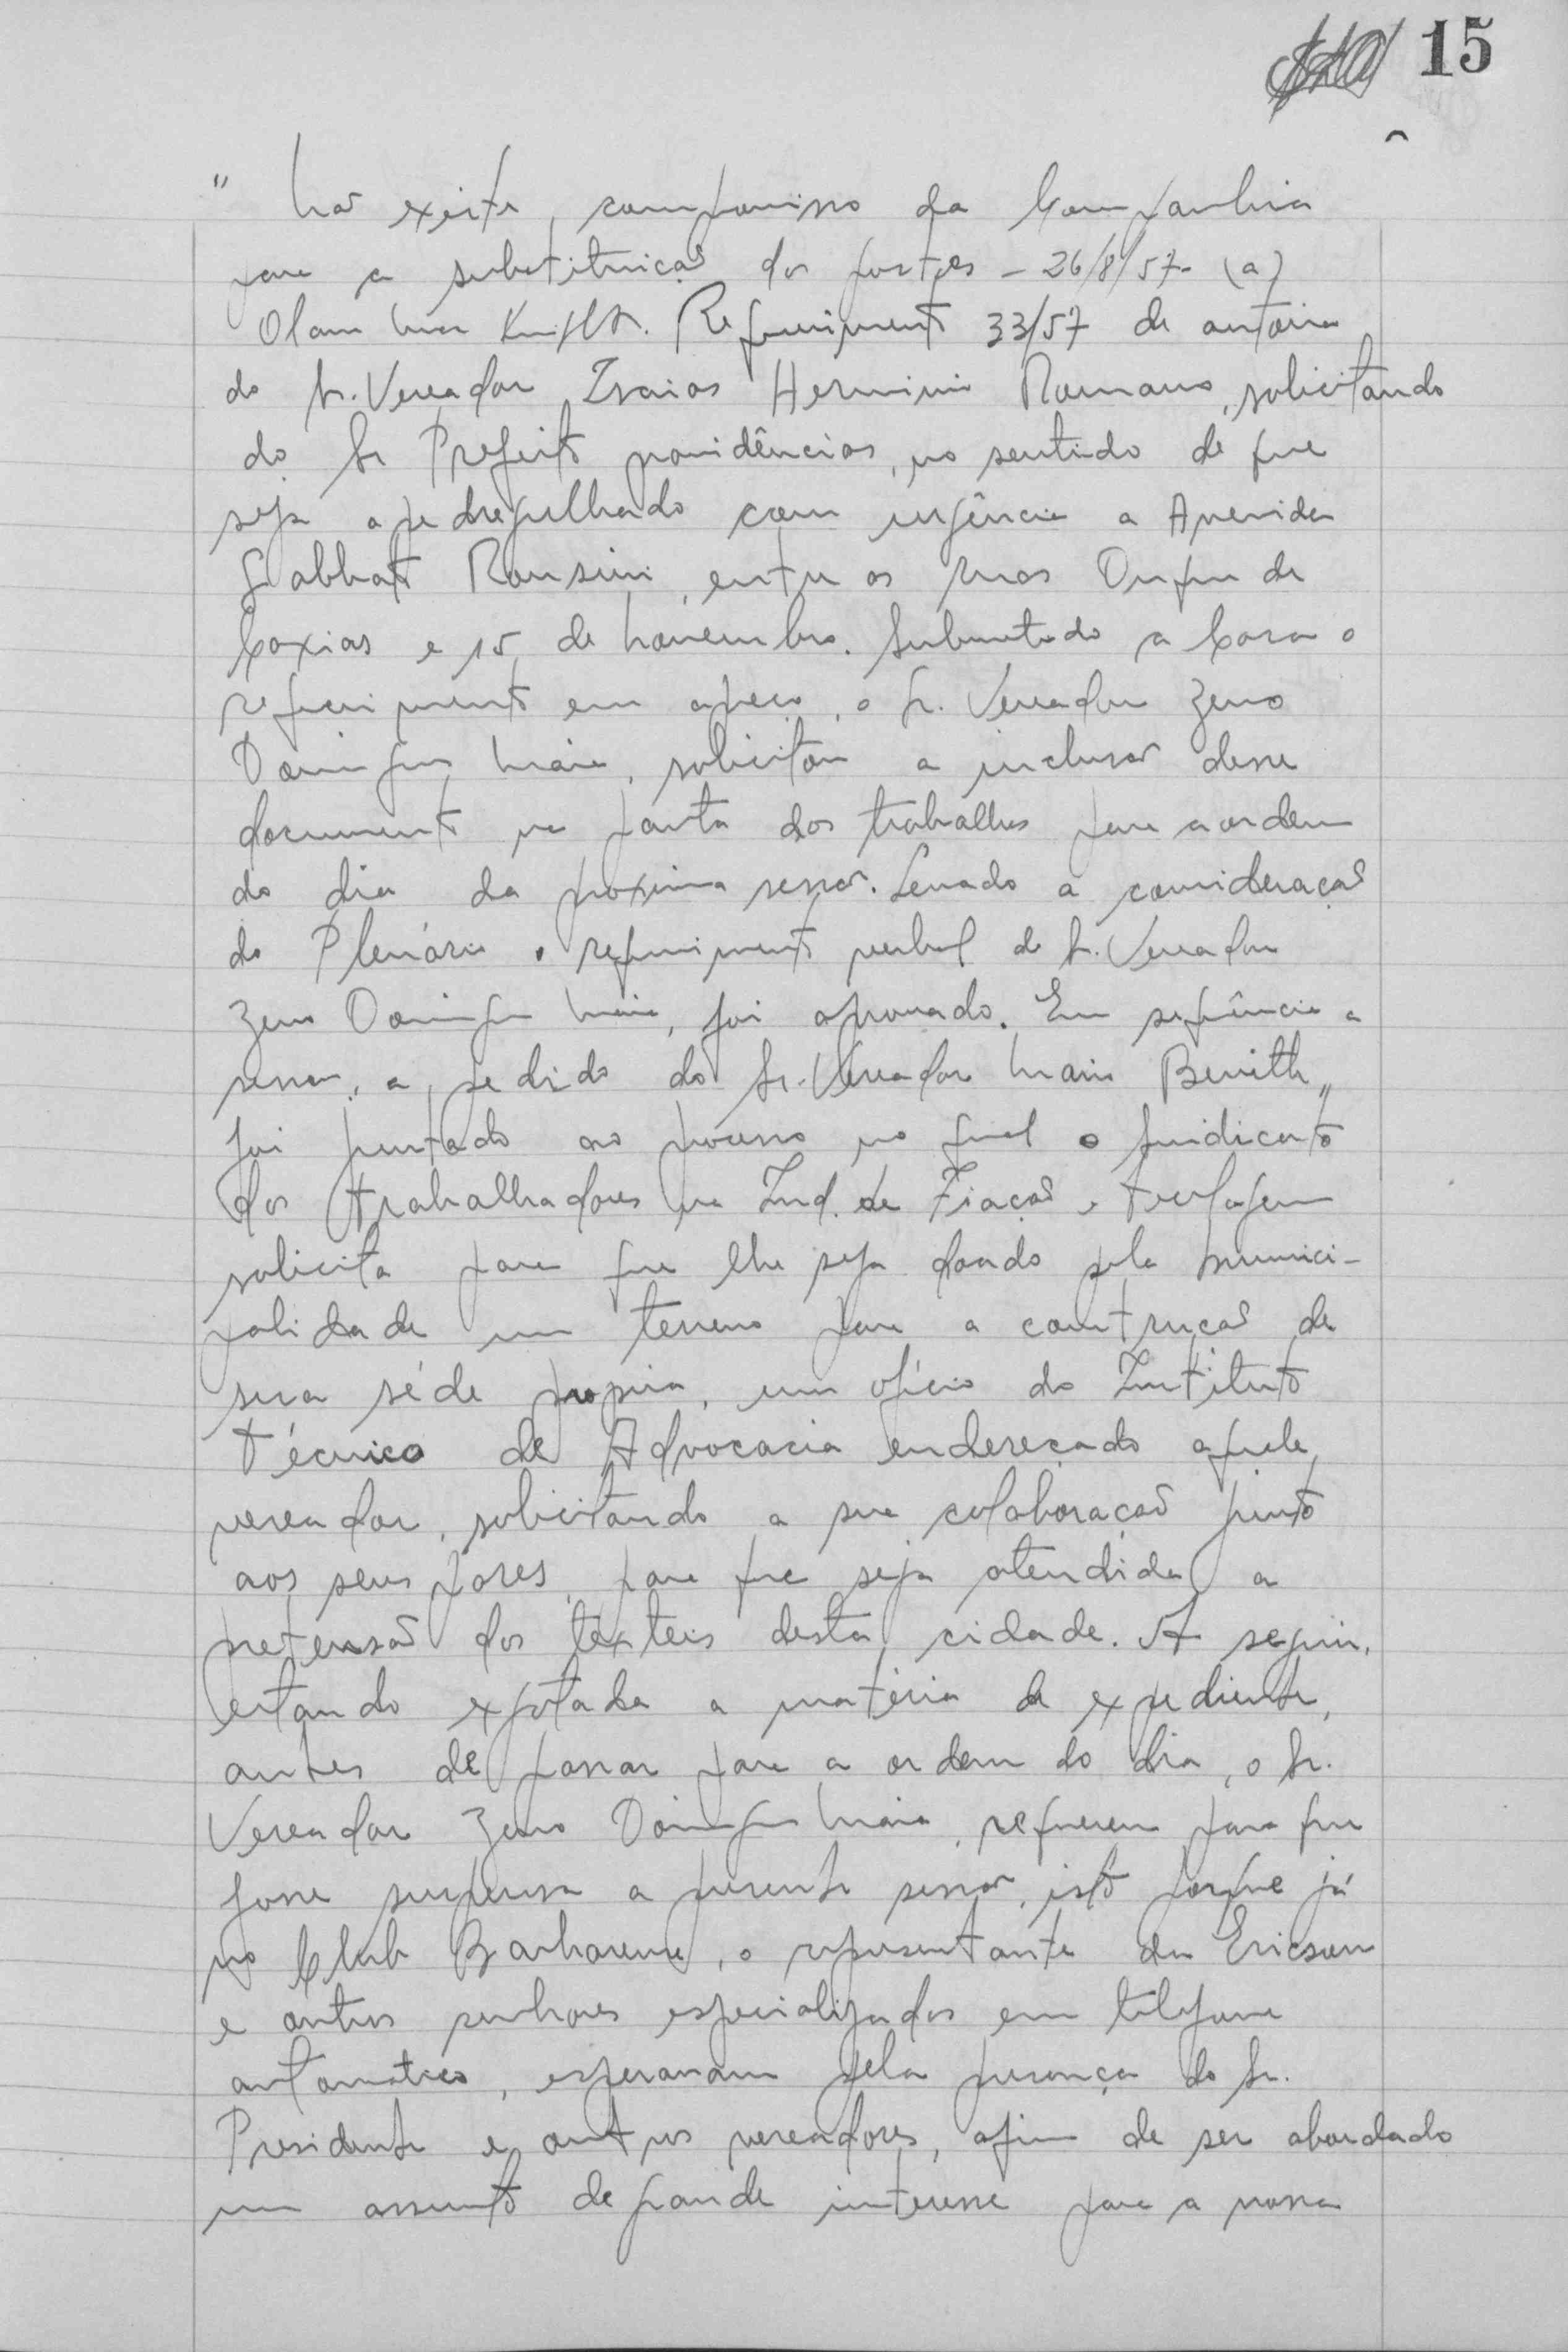 15
" Não existe, compromisso da Companhia
para a substituição dos postes - 26/8/57 - (a)
Requerimento 33/57 de autoria
do Sr. Vereador Isaias Herminio Romano, solicitando
do Sr Prefeito providências, no sentido de que
seja apedregulhado com urgência a Avenida
Sabbato Ronsini, entre as ruas Duque de
Caxias e 15 de Novembro. Submetido a Casa o
requerimento em apreço, o Sr. Vereador Zeno
Domingues Maia, solicitou a inclusão desse
documento na pauta dos trabalhos para a ordem
do dia da proxima sessão. Levado a consideração
do Plenário o requerimento verbal do Sr. Vereador
Zeno Domingues Maia, foi aprovado. Em sequência a
sessão, a pedido do Sr. Vereador Mario Benith,,
foi juntado ao processo no qual o Sindicato
dos trabalhadores na Ind. de Fiação e tecelagem
solicita para que lhe seja doado pela munici-
palidade um terreno para a construção de
sua séde propria, um ofício do Instituto
Técnico de Advocacia endereçado aquele
vereador, solicitando a sua colaboração junto
aos seus pares, para que seja atendida a
pretensão dos têxteis desta cidade. A seguir,
estando exgotada a matéria de expediente,
antes de passar para a ordem do dia, o Sr.
Vereador Zeno Domingues Maia, requereu para que
fosse suspensa a presente sessão, istó porque já
no Club Barbarense, o representante da Ericson
e outros senhores especializados em telefone
automatico, esperavam pela presença do Sr.
Presidente e outros vereadores, afim de ser abordado
um assunto de grande interesse para a nossa